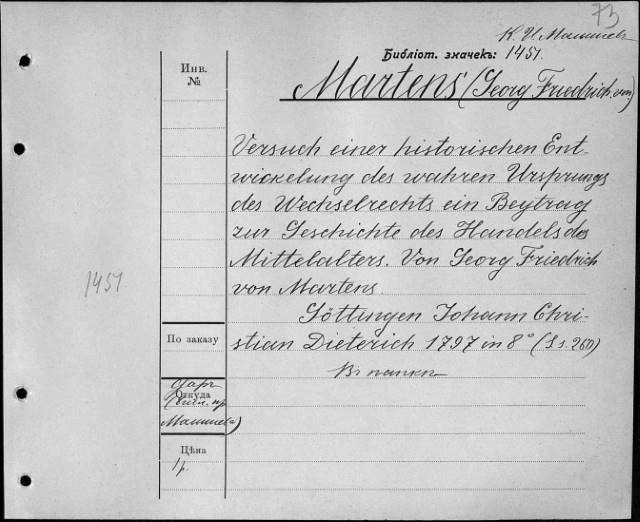 73
К. И. Малышев
Библіот. значекъ: 1451.
Инв.
№
Martens (Georg Friedrich von)
Versuch einer historischen Ent-
wickelung des wahren Ursprungs
des Wechselrechts ein Beytrag
zur Geschichte des Handels des
Mittelalters. Von Georg Friedrich
von Martens
1451
Göttingen Johann Chri-
По заказу
stian Dieterich 1797 in 8° (Ss. 260)
Въ папкѣ
Даръ
Откуда
(библ. пр.
Малышева)
Цѣна
1 р.